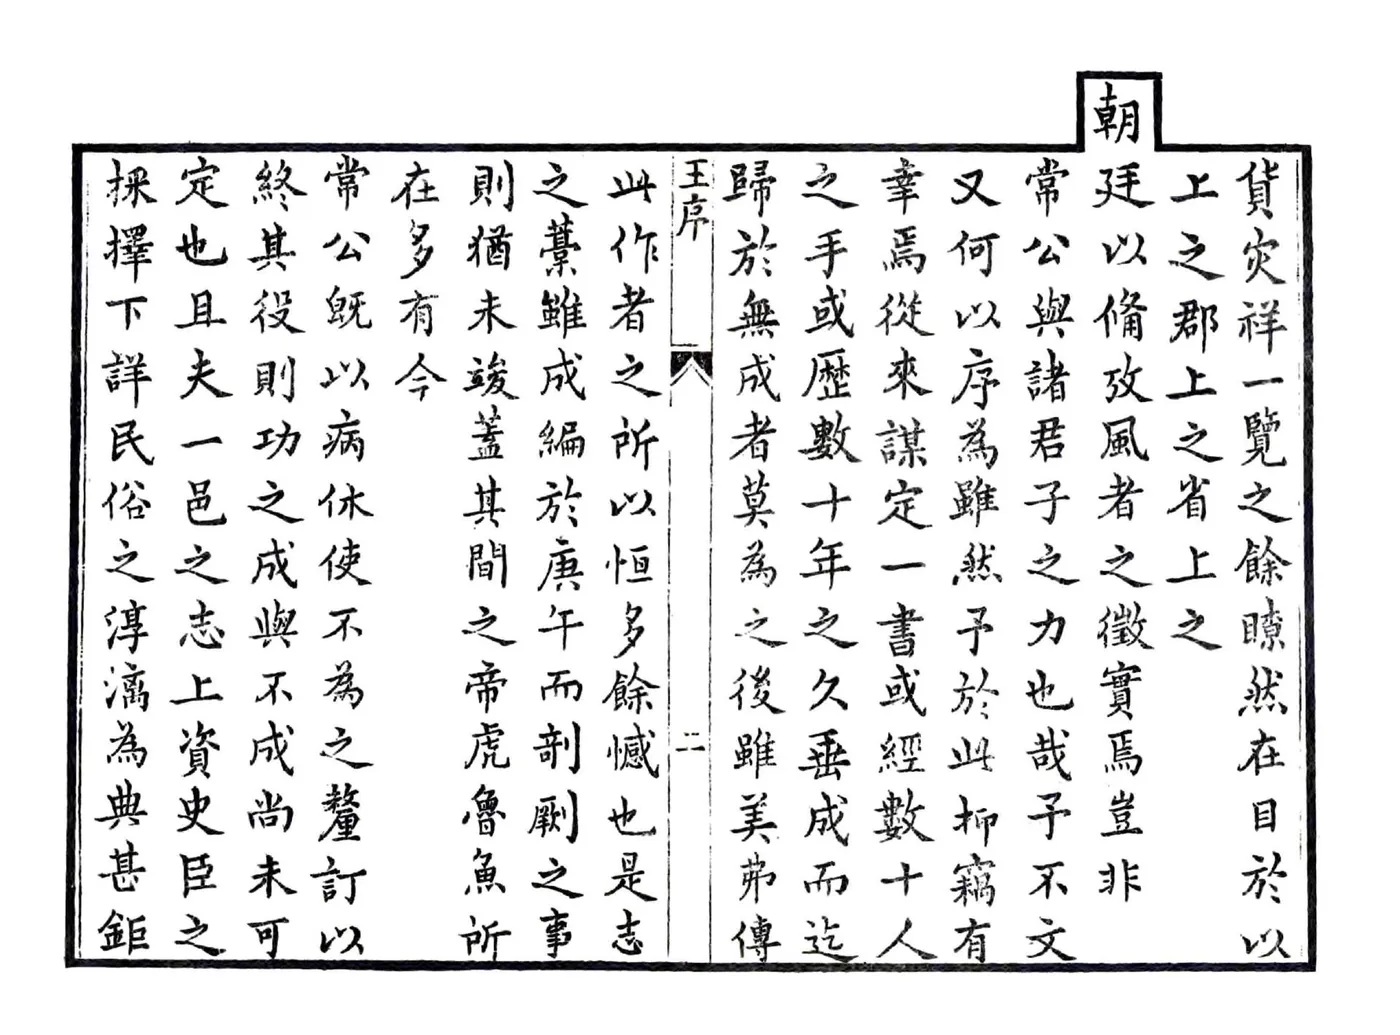 貨灾祥一覽之餘瞭然在目於以
上之郡上之省上之
朝廷以俻攷風者之徵實焉豈非
常公與諸君子之力也哉予不文
又何以序為雖然予於此抑竊有
幸焉從來謀定一書或經數十人
之手或歷數十年之久垂成而迄
歸於無成者莫為之後雖美弗傳
王序
二
此作者之所以恒多餘憾也是志
之藁雖成編於庚午而剞劂之事
則猶未竣蓋其間之帝虎魯魚所
在多有今
常公旣以病休使不為之釐訂以
終其役則功之成與不成尚未可
定也且夫一邑之志上資史臣之
採擇下詳民俗之淳漓為典甚鉅